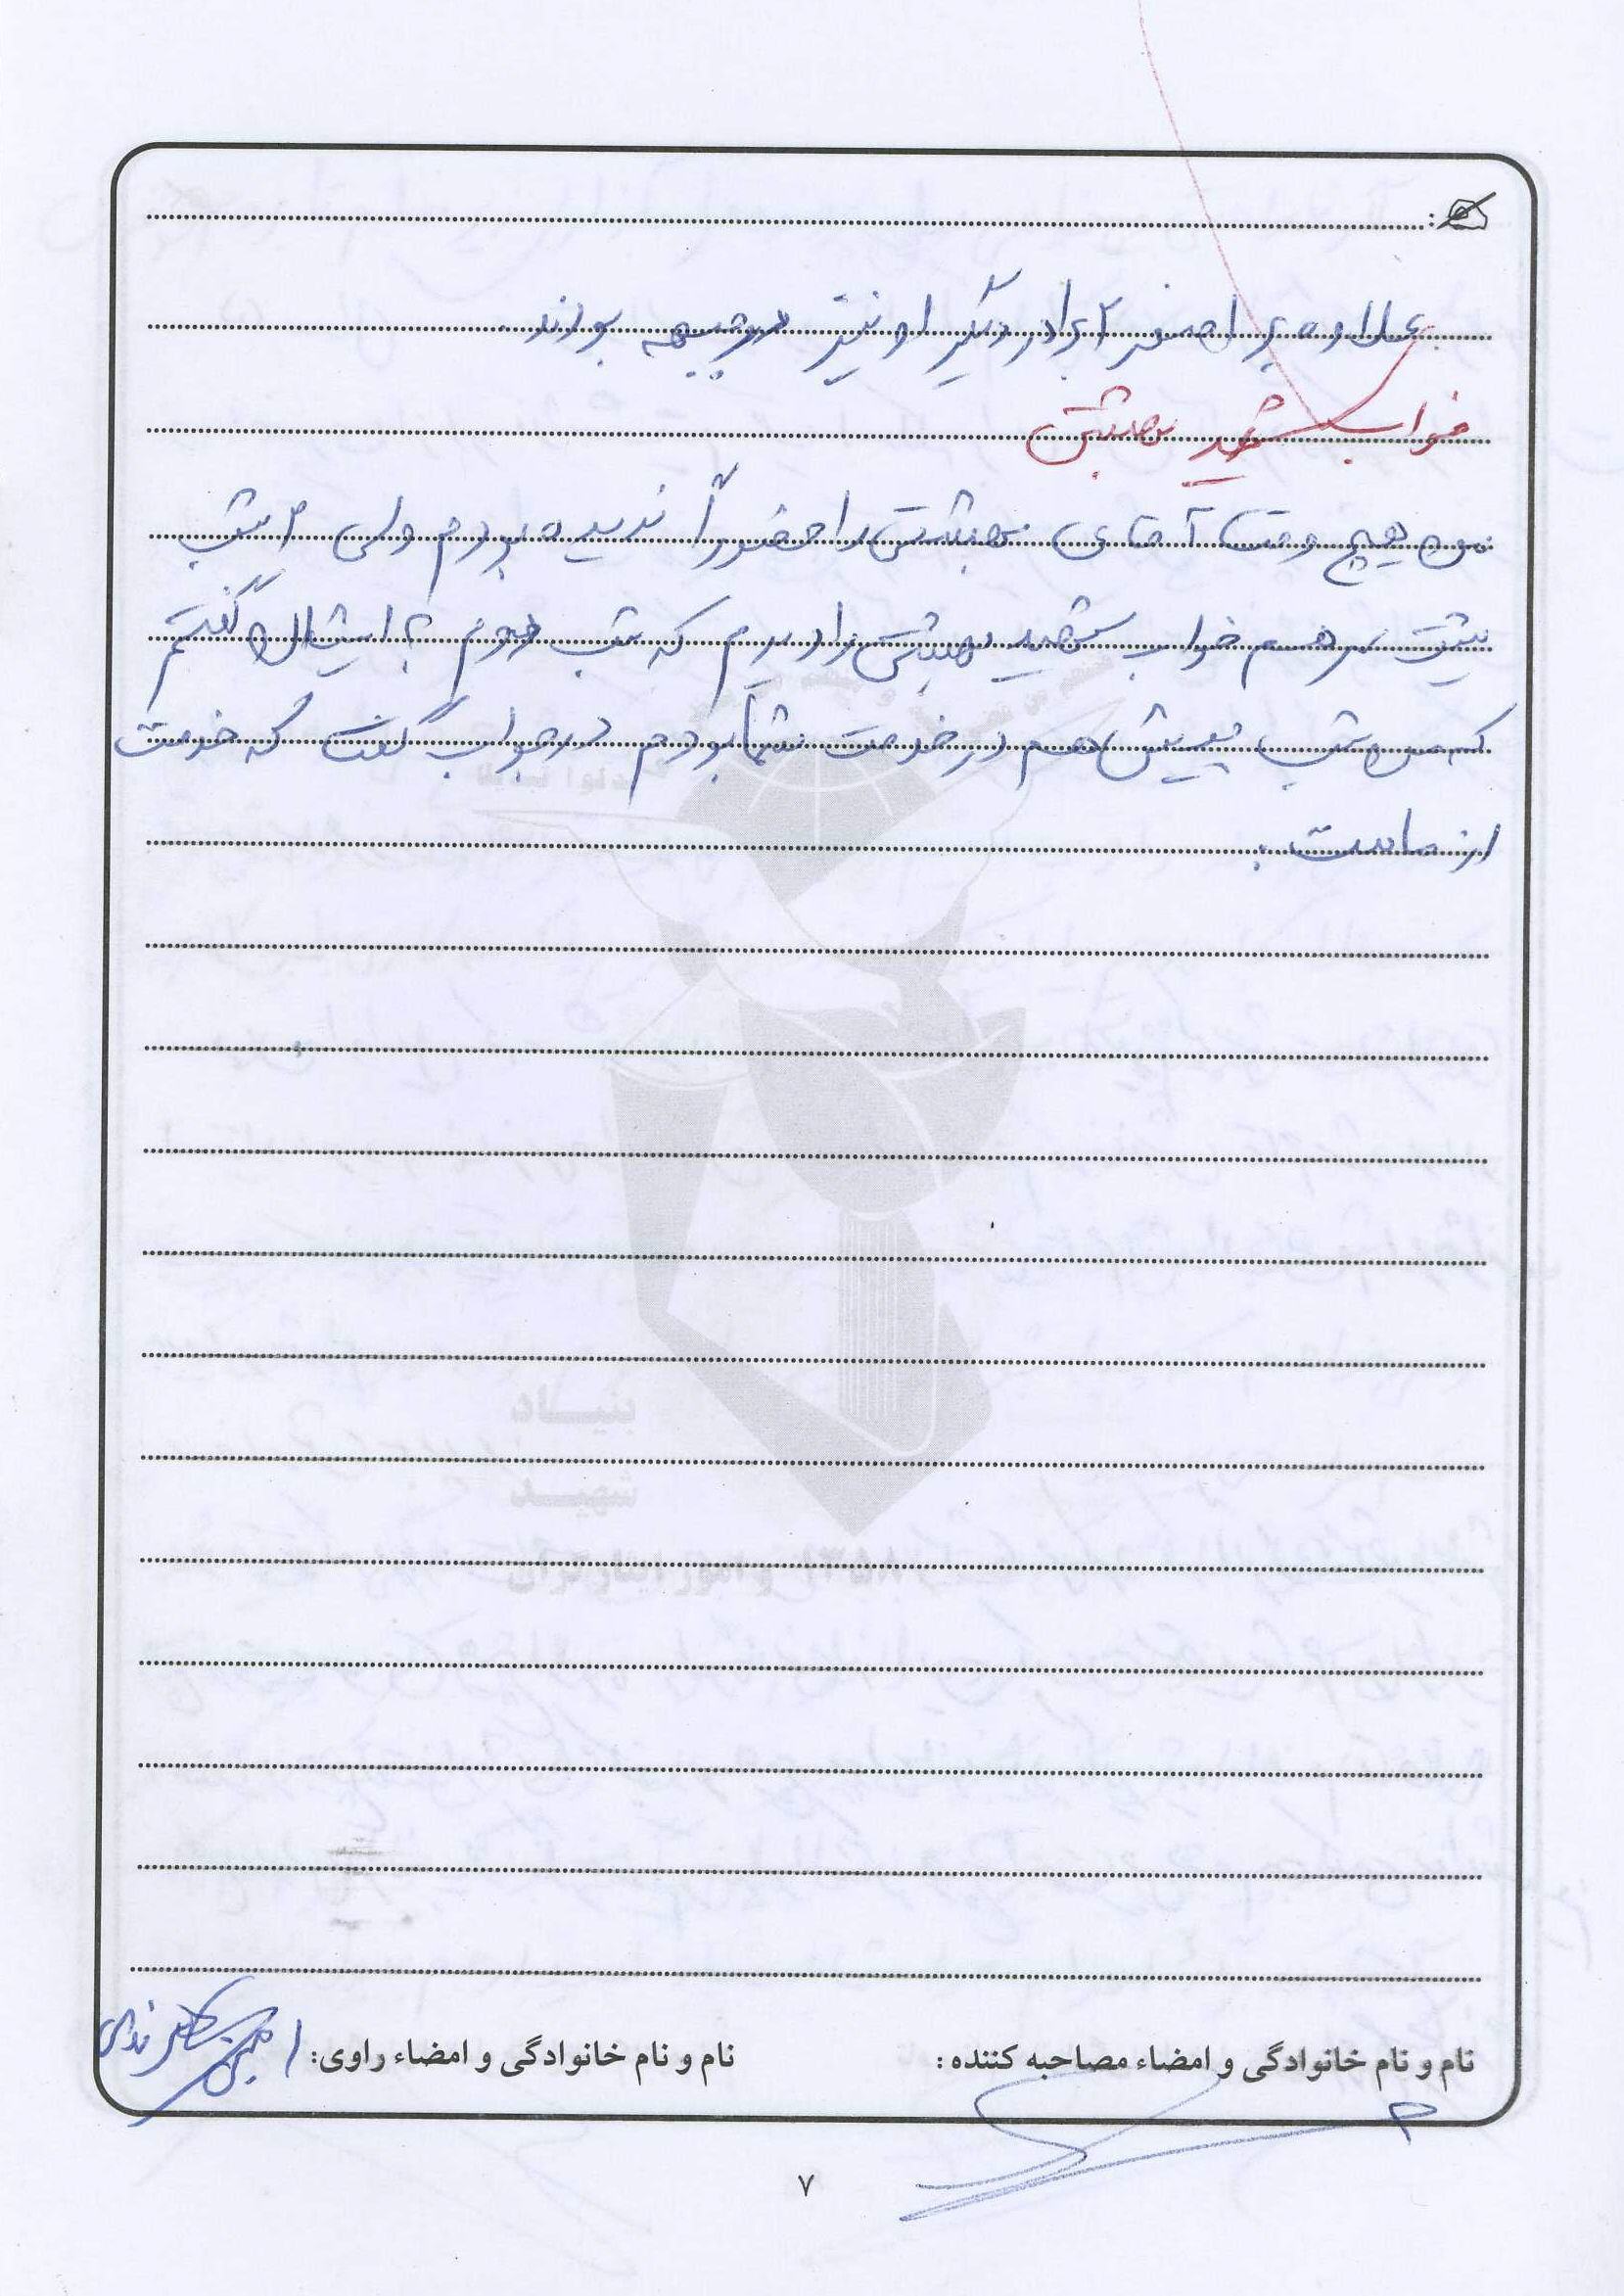 علاوه بر اصغر ۲ برادر دیگر او نیز در جبهه بودند.
خواب شهید بهشتی
من هیچ وقت آقای بهشتی را حضوراً ندیده بودم ولی ۲ شب
پشت سر هم خواب شهید بهشتی را دیدم که شب دوم به ایشان گفتم
که من شب پیش هم در خدمت شما بودم در جواب گفت که خدمت
از ماست.
بنیاد
شهید
و امور ایثارگران
نام و نام خانوادگی و امضاء مصاحبه کننده :
نام و نام خانوادگی و امضاء راوی:
۷